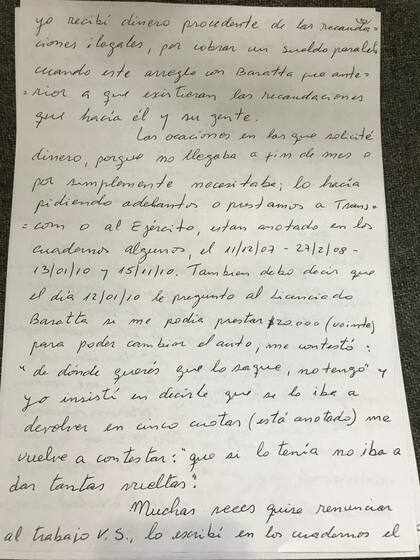 yo recibí dinero procedente de las recauda=
=ciones ilegales, por cobrar un sueldo paralelo
cuando este arreglo con Baratta fue ante=
=rior a que existieran las recaudaciones
que hacía él y su gente.
Las ocaciones en las que solicité
dinero, porque no llegaba a fin de mes o
por simplemente necesitaba; lo hacía
pidiendo adelantos o prestamos a Trans=
=com o al Ejército, estan anotado en los
cuadernos algunos, el 11/12/07 - 27/2/08 -
13/01/10 y 15/11/10. Tambien debo decir que
el día 12/01/10 le pregunto al Licenciado
Baratta si me podía prestar $20.000 (veinte)
para poder cambiar el auto, me contestó:
"de dónde querés que lo saque, no tengo" y
yo insistí en decirle que se lo iba a
devolver en cinco cuotas (está anotado) me
vuelve a contestar: "que si lo tenía no iba a
dar tantas vueltas".
Muchas veces quise renunciar
al trabajo V.S., lo escribí en los cuadernos el